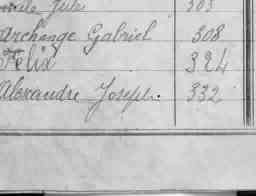 Jule 303
Archange Gabriel 308
Felix 324
Alexandre Joseph. 332